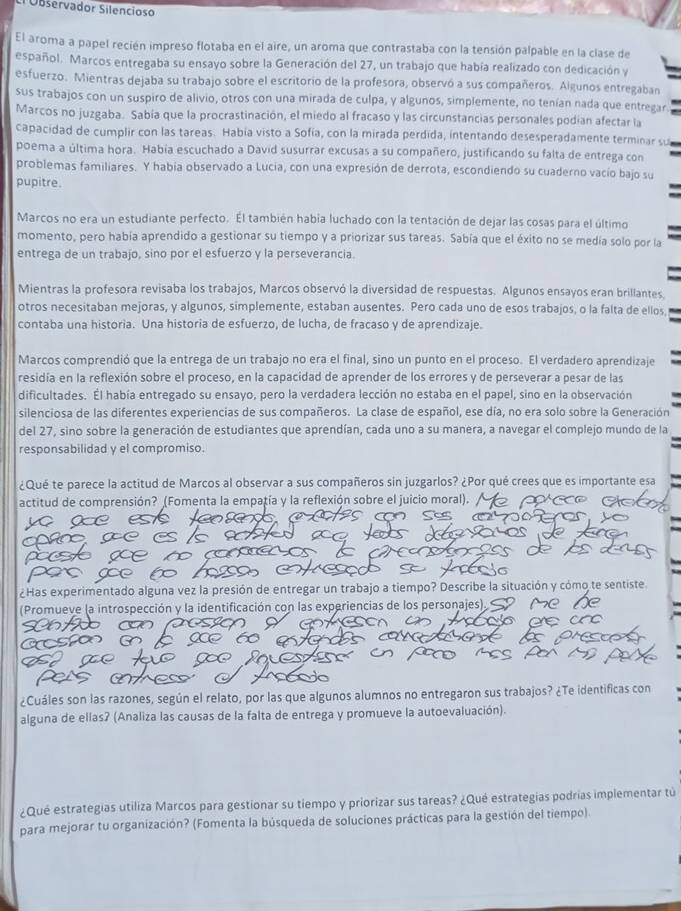 El Observador Silencioso
El aroma a papel recién impreso flotaba en el aire, un aroma que contrastaba con la tensión palpable en la clase de
español. Marcos entregaba su ensayo sobre la Generación del 27, un trabajo que había realizado con dedicación y
esfuerzo. Mientras dejaba su trabajo sobre el escritorio de la profesora, observó a sus compañeros. Algunos entregaban
sus trabajos con un suspiro de alivio, otros con una mirada de culpa, y algunos, simplemente, no tenían nada que entregar.
Marcos no juzgaba. Sabía que la procrastinación, el miedo al fracaso y las circunstancias personales podían afectar la
capacidad de cumplir con las tareas. Había visto a Sofía, con la mirada perdida, intentando desesperadamente terminar su
poema a última hora. Había escuchado a David susurrar excusas a su compañero, justificando su falta de entrega con
problemas familiares. Y había observado a Lucía, con una expresión de derrota, escondiendo su cuaderno vacío bajo su
pupitre.
Marcos no era un estudiante perfecto. Él también había luchado con la tentación de dejar las cosas para el último
momento, pero había aprendido a gestionar su tiempo y a priorizar sus tareas. Sabía que el éxito no se medía solo por la
entrega de un trabajo, sino por el esfuerzo y la perseverancia.
Mientras la profesora revisaba los trabajos, Marcos observó la diversidad de respuestas. Algunos ensayos eran brillantes,
otros necesitaban mejoras, y algunos, simplemente, estaban ausentes. Pero cada uno de esos trabajos, o la falta de ellos,
contaba una historia. Una historia de esfuerzo, de lucha, de fracaso y de aprendizaje.
Marcos comprendió que la entrega de un trabajo no era el final, sino un punto en el proceso. El verdadero aprendizaje
residía en la reflexión sobre el proceso, en la capacidad de aprender de los errores y de perseverar a pesar de las
dificultades. Él había entregado su ensayo, pero la verdadera lección no estaba en el papel, sino en la observación
silenciosa de las diferentes experiencias de sus compañeros. La clase de español, ese día, no era solo sobre la Generación
del 27, sino sobre la generación de estudiantes que aprendían, cada uno a su manera, a navegar el complejo mundo de la
responsabilidad y el compromiso.
¿Qué te parece la actitud de Marcos al observar a sus compañeros sin juzgarlos? ¿Por qué crees que es importante esa
actitud de comprensión? (Fomenta la empatía y la reflexión sobre el juicio moral). Me parece
ya que este con sus compañeros yo
que es la actitud que todos de tener
que no conocemos la de los demas
por que no entregado su trabajo
¿Has experimentado alguna vez la presión de entregar un trabajo a tiempo? Describe la situación y cómo te sentiste.
(Promueve la introspección y la identificación con las experiencias de los personajes). me he
con presion un trabajo una
en la que no
que tuve que un poco mas por mi parte
el trabajo
¿Cuáles son las razones, según el relato, por las que algunos alumnos no entregaron sus trabajos? ¿Te identificas con
alguna de ellas? (Analiza las causas de la falta de entrega y promueve la autoevaluación).
¿Qué estrategias utiliza Marcos para gestionar su tiempo y priorizar sus tareas? ¿Qué estrategias podrías implementar tú
para mejorar tu organización? (Fomenta la búsqueda de soluciones prácticas para la gestión del tiempo).